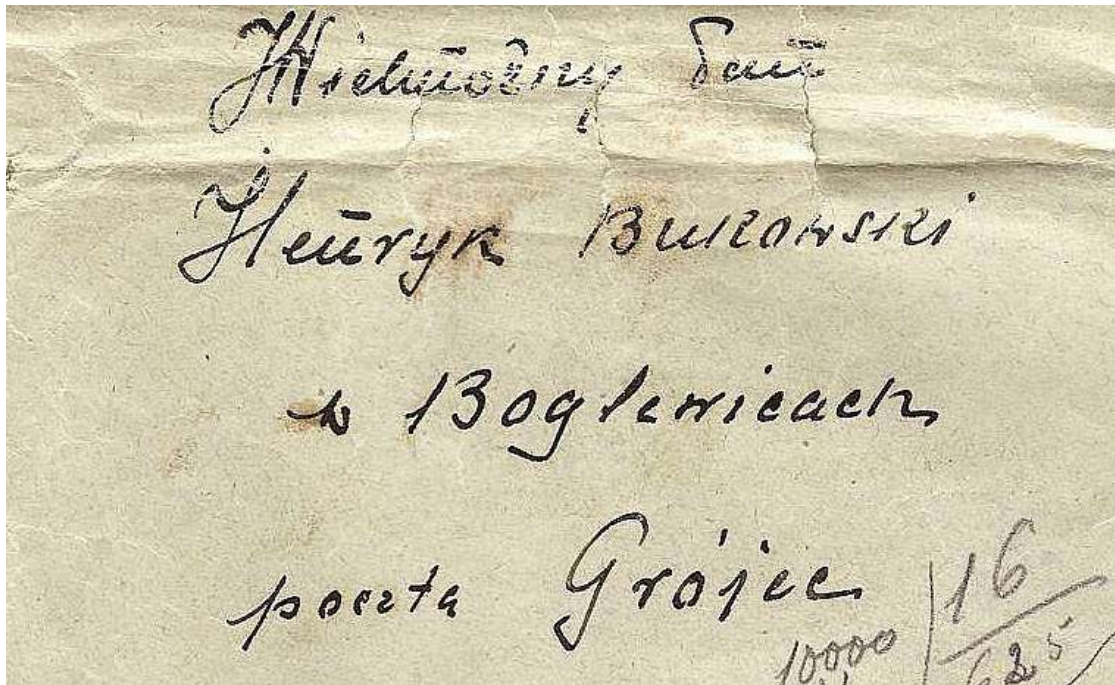 Wielmożny Pan
Henryk Bukowski
w Boglewicach
poczta Grójec
16
10000
625